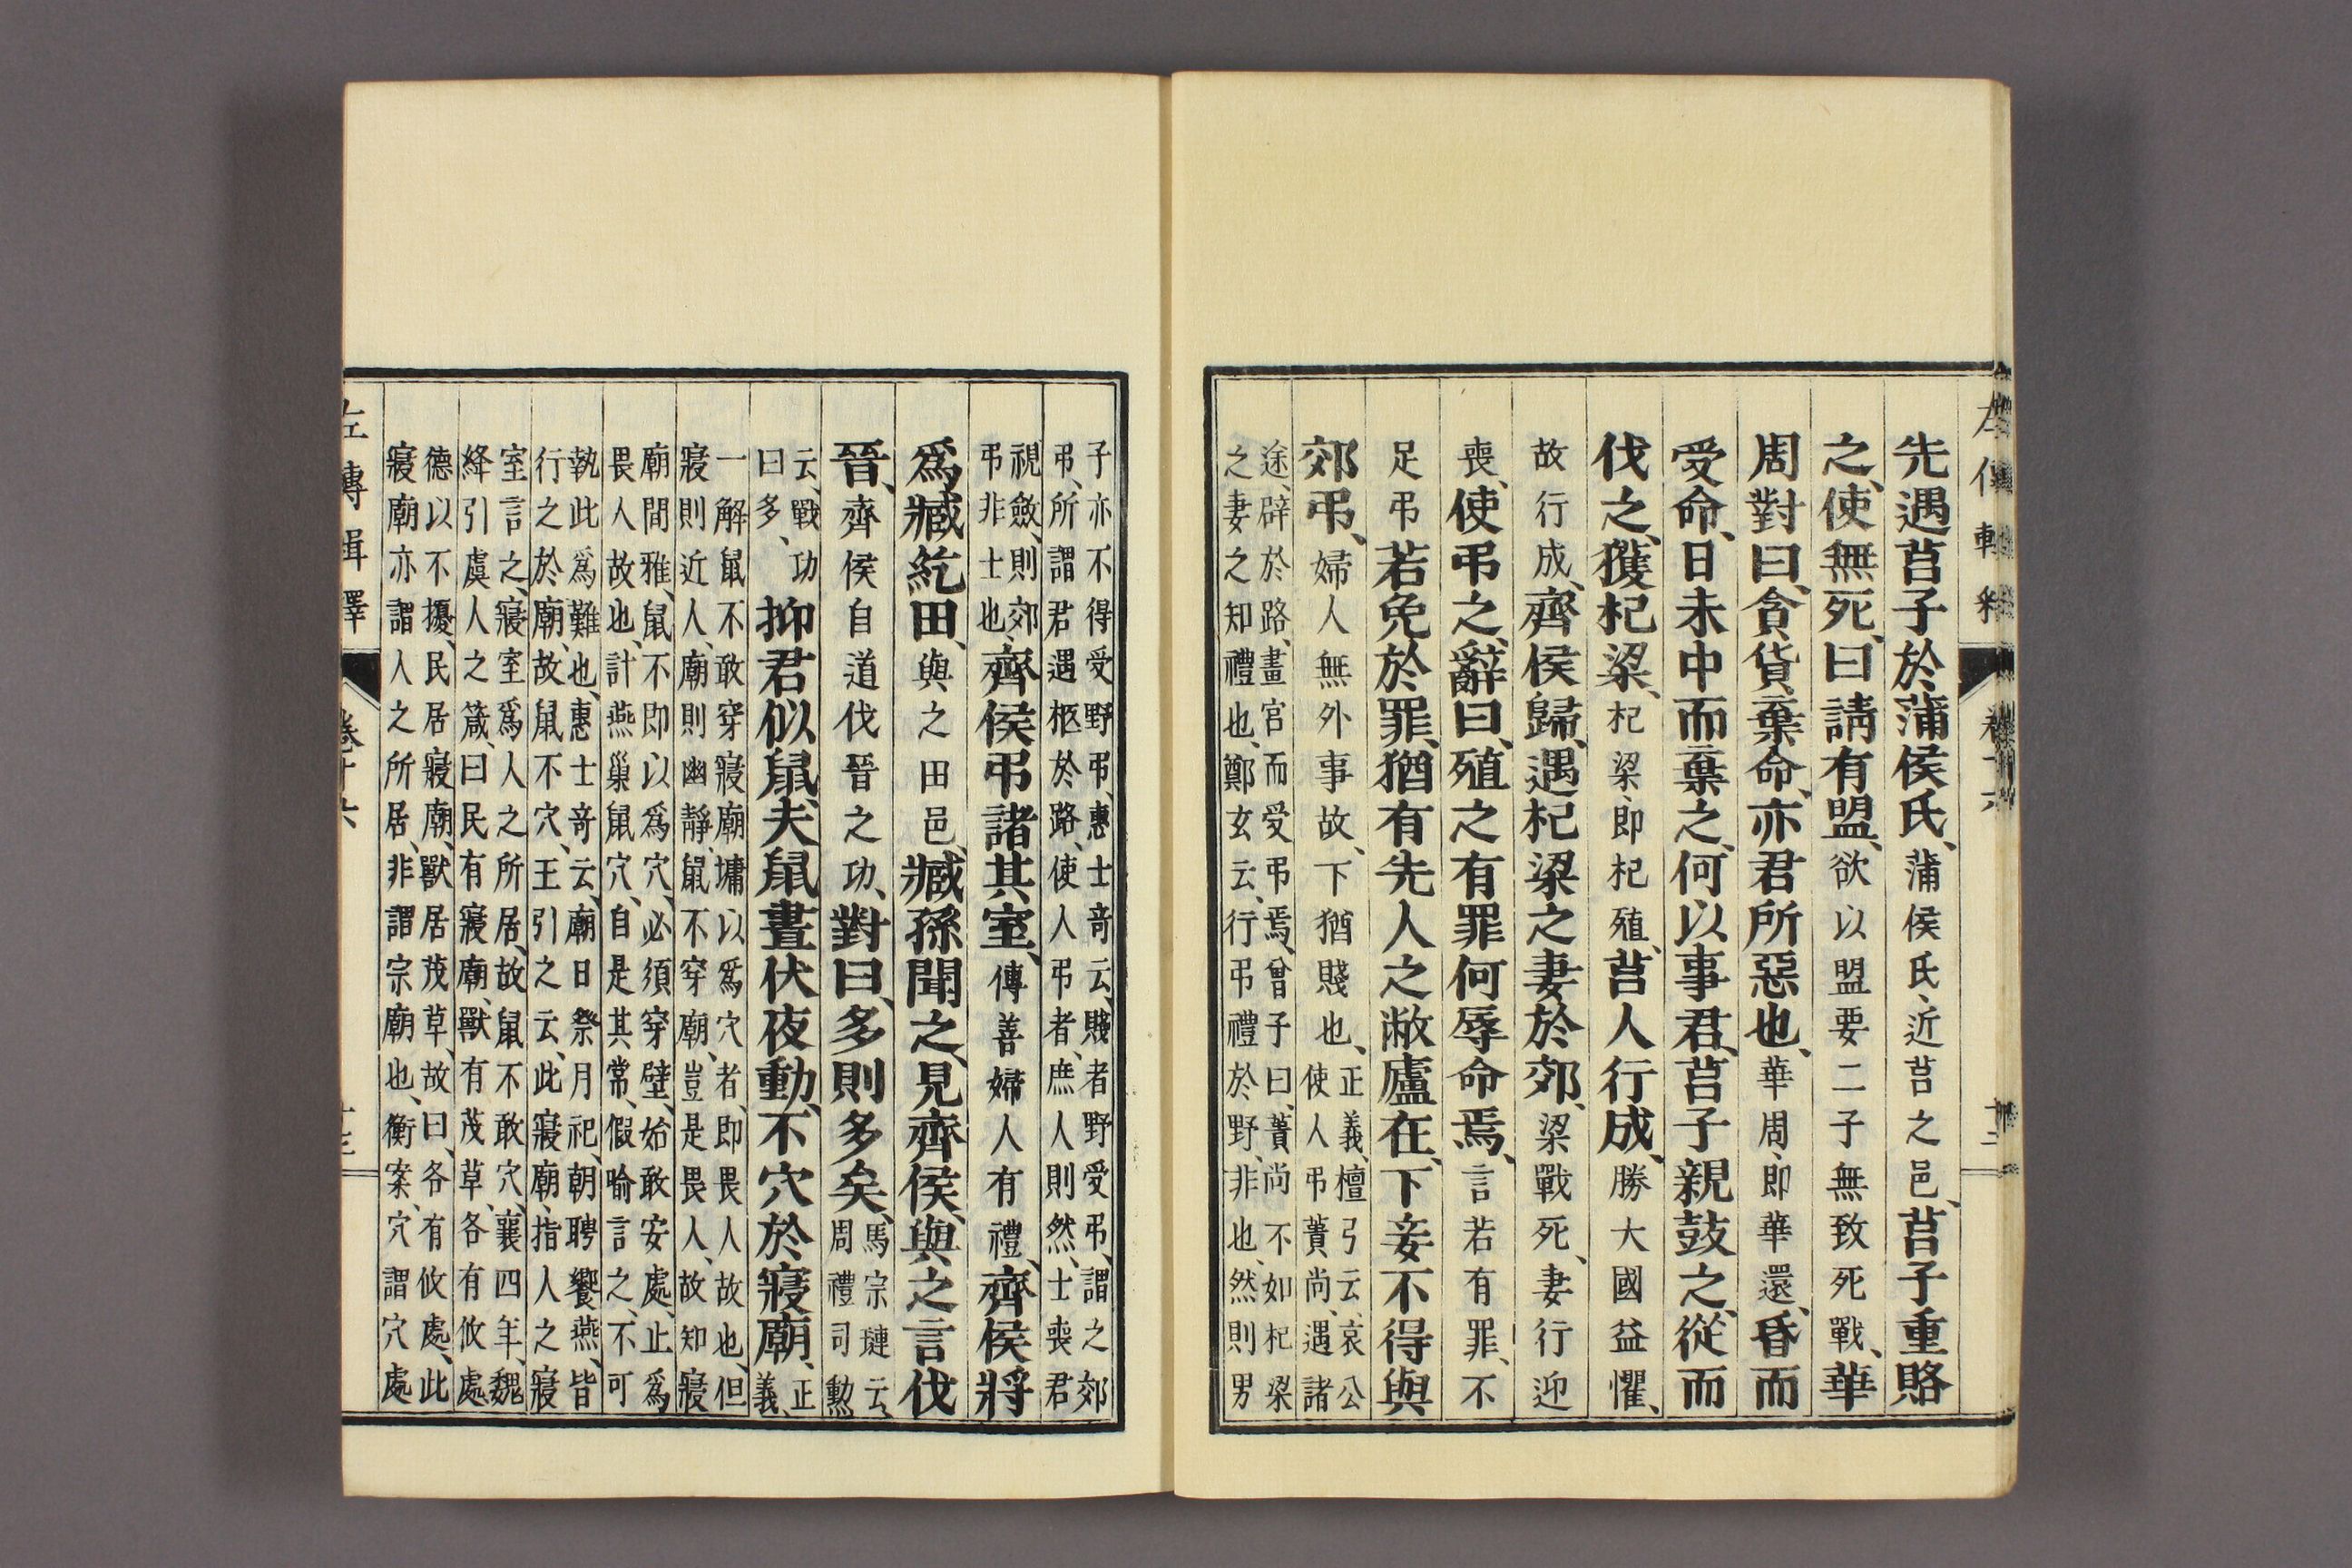 先遇莒子於蒲侯氏、蒲侯氏、近莒之邑、莒子重賂
之、使無死、曰請有盟、欲以盟要二子無致死戰、華
周對曰、貪貨棄命、亦君所惡也、華周、即華還、昏而
受命、日未中而棄之、何以事君、莒子親鼓之、從而
伐之、獲杞梁、杞梁、即杞殖、莒人行成、勝大國益懼、
故行成、齊侯歸、遇杞梁之妻於郊、梁戰死、妻行迎
喪、使弔之、辭曰、殖之有罪何辱命焉、言若有罪、不
足弔若免於罪、猶有先人之敝廬在、下妾不得與
郊弔、婦人無外事故、下猶賤也、正義、檀弓云、哀公
使人弔蕢尚、遇諸
途、辟於路、畫宮而受弔焉、曾子曰、蕢尚不如杞梁
之妻之知禮也、鄭玄云、行弔禮於野、非也、然則男
子亦不得受野弔、惠士奇云、賤者野受弔、謂之郊
弔、所謂君遇柩於路、使人弔者、庶人則然、士喪君
視斂、則郊
弔非士也、齊侯弔諸其室、傳善婦人有禮、齊侯將
爲臧紇田、與之田邑、臧孫聞之、見齊侯、與之言伐
晉、齊侯自道伐晉之功、對曰、多則多矣、馬宗璉云、
周禮司勲
云、戰功
曰多、抑君似鼠、夫鼠晝伏夜動、不穴於寢廟、正
義、
一解鼠不敢穿寢廟墉以爲穴者、即畏人故也、但
寢則近人、廟則幽靜、鼠不穿廟、豈是畏人、故知寢
廟間雅、鼠不即以爲穴、必須穿壁、始敢安處、止爲
畏人故也、計燕巢鼠穴、自是其常、假喻言之、不可
執此爲難也、惠士奇云、廟日祭月祀、朝聘饗燕、皆
行之於廟、故鼠不穴、王引之云、此寢廟、指人之寢
室言之、寢室爲人之所居、故鼠不敢穴、襄四年、魏
絳引虞人之箴、曰民有寢廟、獸有茂草、各有攸處、
德以不擾、民居寢廟、獸居茂草、故曰、各有攸處、此
寢廟亦謂人之所居、非謂宗廟也、衡案、穴謂穴處